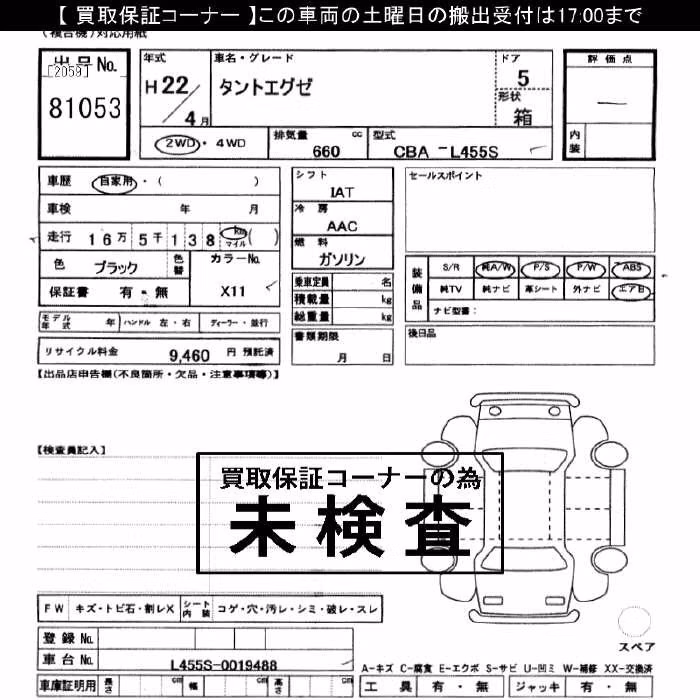 【 買取保証コーナー 】この車両の土曜日の搬出受付は17:00まで
(複合機)対応用紙
出品No.
[2059]
81053
年式
H 22/4月
車名・グレード
タントエグゼ
ドア
5
形状
箱
評価点
内装
2WD・4WD
排気量 660 cc
型式 CBA-L455S
車歴 自家用・( )
車検 年 月
走行 16万5千138 km マイル ( )
色 ブラック 色替
カラーNo. X11
保証書 有・無
シフト
IAT
冷房
AAC
燃料
ガソリン
乗車定員 名
積載量 kg
総重量 kg
書類期限
月 日
セールスポイント
装備品
S/R 純A/W P/S P/W ABS
純TV 純ナビ 革シート 外ナビ エアB
ナビ型番:
後日品
モデル年式 年 ハンドル 左・右 ディーラー・並行
リサイクル料金 9,460 円 預託済
【出品店申告欄(不良箇所・欠品・注意事項等)】
【検査員記入】
買取保証コーナーの為
未検査
FW キズ・トビ石・割レX シート内装 コゲ・穴・汚レ・シミ・破レ・スレ
スペア
登録No.
車台No. L455S-0019488
A-キズ C-腐食 E-エクボ S-サビ U-凹ミ W-補修 XX-交換済
車庫証明用 長さ cm 幅 cm 高さ cm
工具 有・無 ジャッキ 有・無